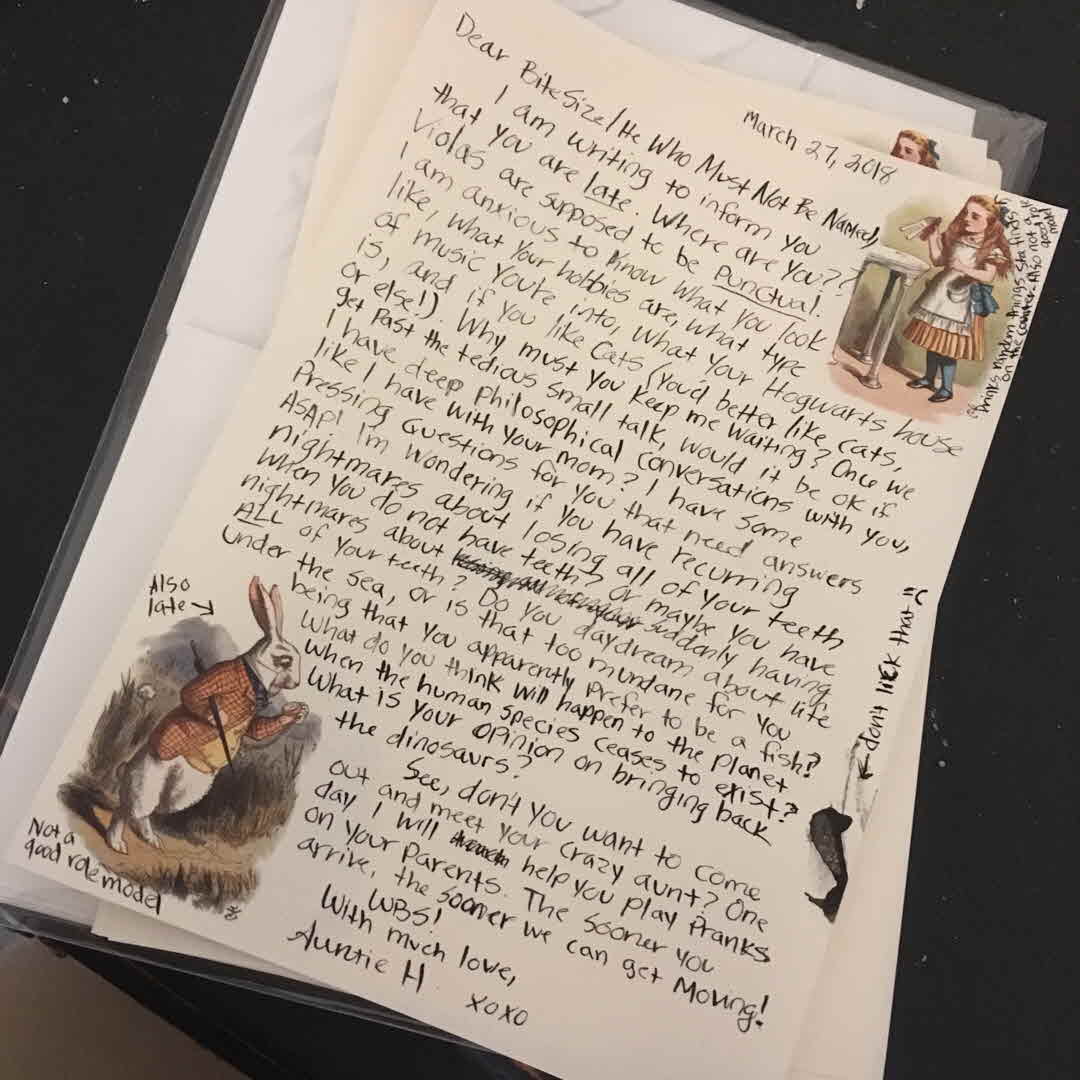 March 27, 2018
Dear BiteSize/He Who Must Not Be Named,
I am writing to inform you
that you are late. Where are you??
Violas are supposed to be punctual.
I am anxious to know what you look
like, what your hobbies are, what type
of music you're into, what your Hogwarts house
is, and if you like cats (you'd better like cats,
or else!). Why must you keep me waiting? Once we
get past the tedious small talk, would it be ok if
I have deep philosophical conversations with you,
like I have with your mom? I have some
pressing questions for you that need answers
ASAP! I'm wondering if you have recurring
nightmares about losing all of your teeth
when you do not have teeth? Or maybe you have
nightmares about suddenly having
ALL of your teeth? Do you daydream about life
under the sea, or is that too mundane for you
being that you apparently prefer to be a fish?
What do you think will happen to the planet
when the human species ceases to exist?
What is your opinion on bringing back
the dinosaurs?
See, don't you want to come
out and meet your crazy aunt? One
day I will help you play pranks
on your parents. The sooner you
arrive, the sooner we can get moving!
WBS!
With much love,
Auntie H.
xoxo
Drinks random things she finds
on the counter. Also not a
good role
model
Also
late →
Not a
good role model
← don't lick that =)